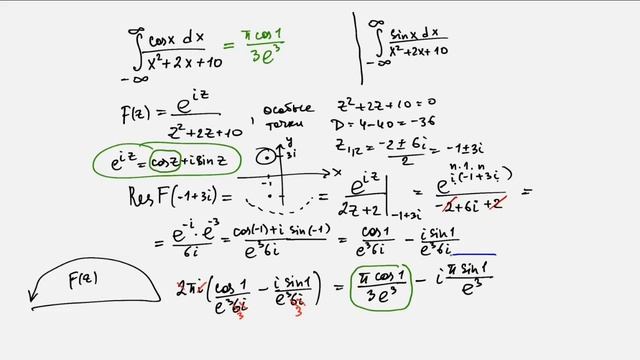 ∫_{-∞}^{∞} cosx dx / (x²+2x+10) = π cos1 / 3e³
∫_{-∞}^{∞} sinx dx / (x²+2x+10)
F(z) = e^{iz} / (z²+2z+10), особые точки
z²+2z+10=0
D=4-40=-36
z_{1,2} = (-2 ± 6i)/2 = -1±3i
e^{iz} = cosz + i sinz
y
3i
-1
x
Res F(-1+3i) = = e^{iz}/(2z+2) |_{-1+3i} = e^{i(-1+3i)} / (-2+6i+2) =
= e^{-i}·e^{-3} / 6i = (cos(-1)+i sin(-1)) / e³6i = cos1 / e³6i - i sin1 / e³6i
F(z)
2πi (cos1 / e³6i - i sin1 / e³6i) = π cos1 / 3e³ - i π sin1 / e³
3 3